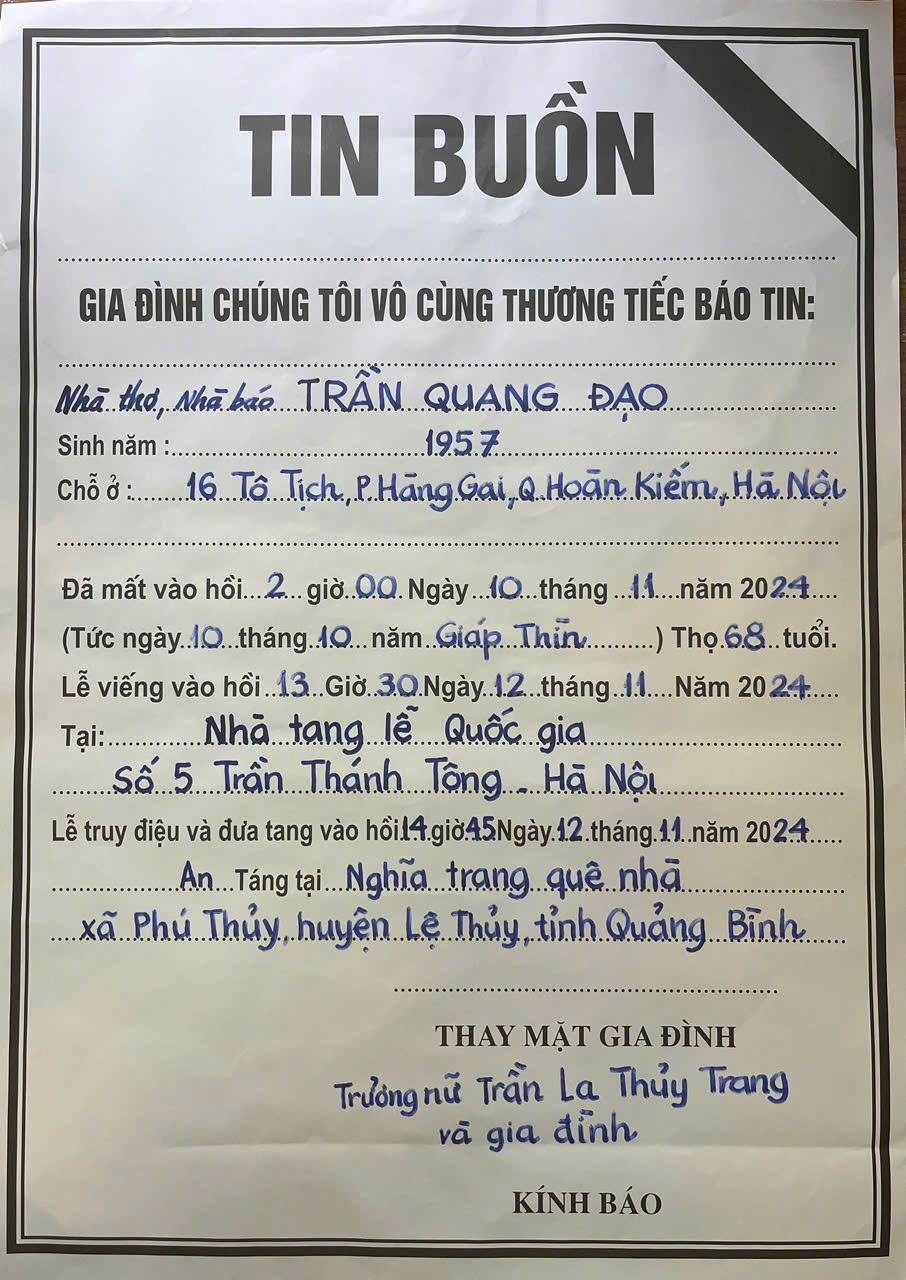 TIN BUỒN
GIA ĐÌNH CHÚNG TÔI VÔ CÙNG THƯƠNG TIẾC BÁO TIN:
Nhà thơ, Nhà báo TRẦN QUANG ĐẠO
Sinh năm : 1957
Chỗ ở : 16 Tô Tịch, P. Hàng Gai, Q. Hoàn Kiếm, Hà Nội
Đã mất vào hồi 2 giờ 00 Ngày 10 tháng 11 năm 2024
(Tức ngày 10 tháng 10 năm Giáp Thìn ) Thọ 68 tuổi.
Lễ viếng vào hồi 13 Giờ 30 Ngày 12 tháng 11 Năm 2024
Tại: Nhà tang lễ Quốc gia
Số 5 Trần Thánh Tông - Hà Nội
Lễ truy điệu và đưa tang vào hồi 14 giờ 45 Ngày 12 tháng 11 năm 2024
An Táng tại Nghĩa trang quê nhà
xã Phú Thủy, huyện Lệ Thủy, tỉnh Quảng Bình
THAY MẶT GIA ĐÌNH
Trưởng nữ Trần La Thủy Trang
và gia đình
KÍNH BÁO